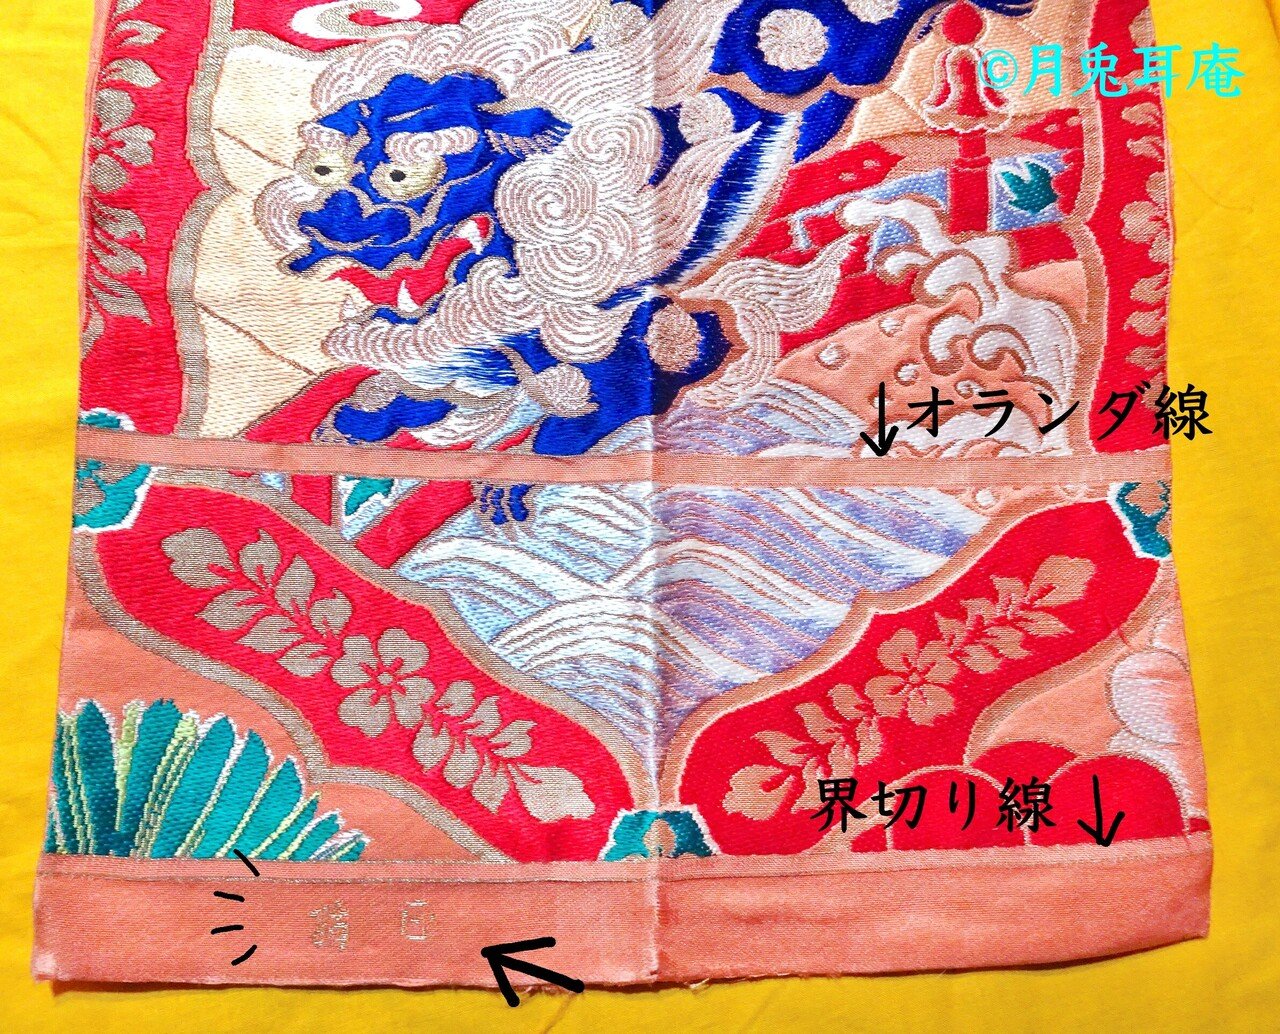 ©月兎耳庵
オランダ線
界切り線